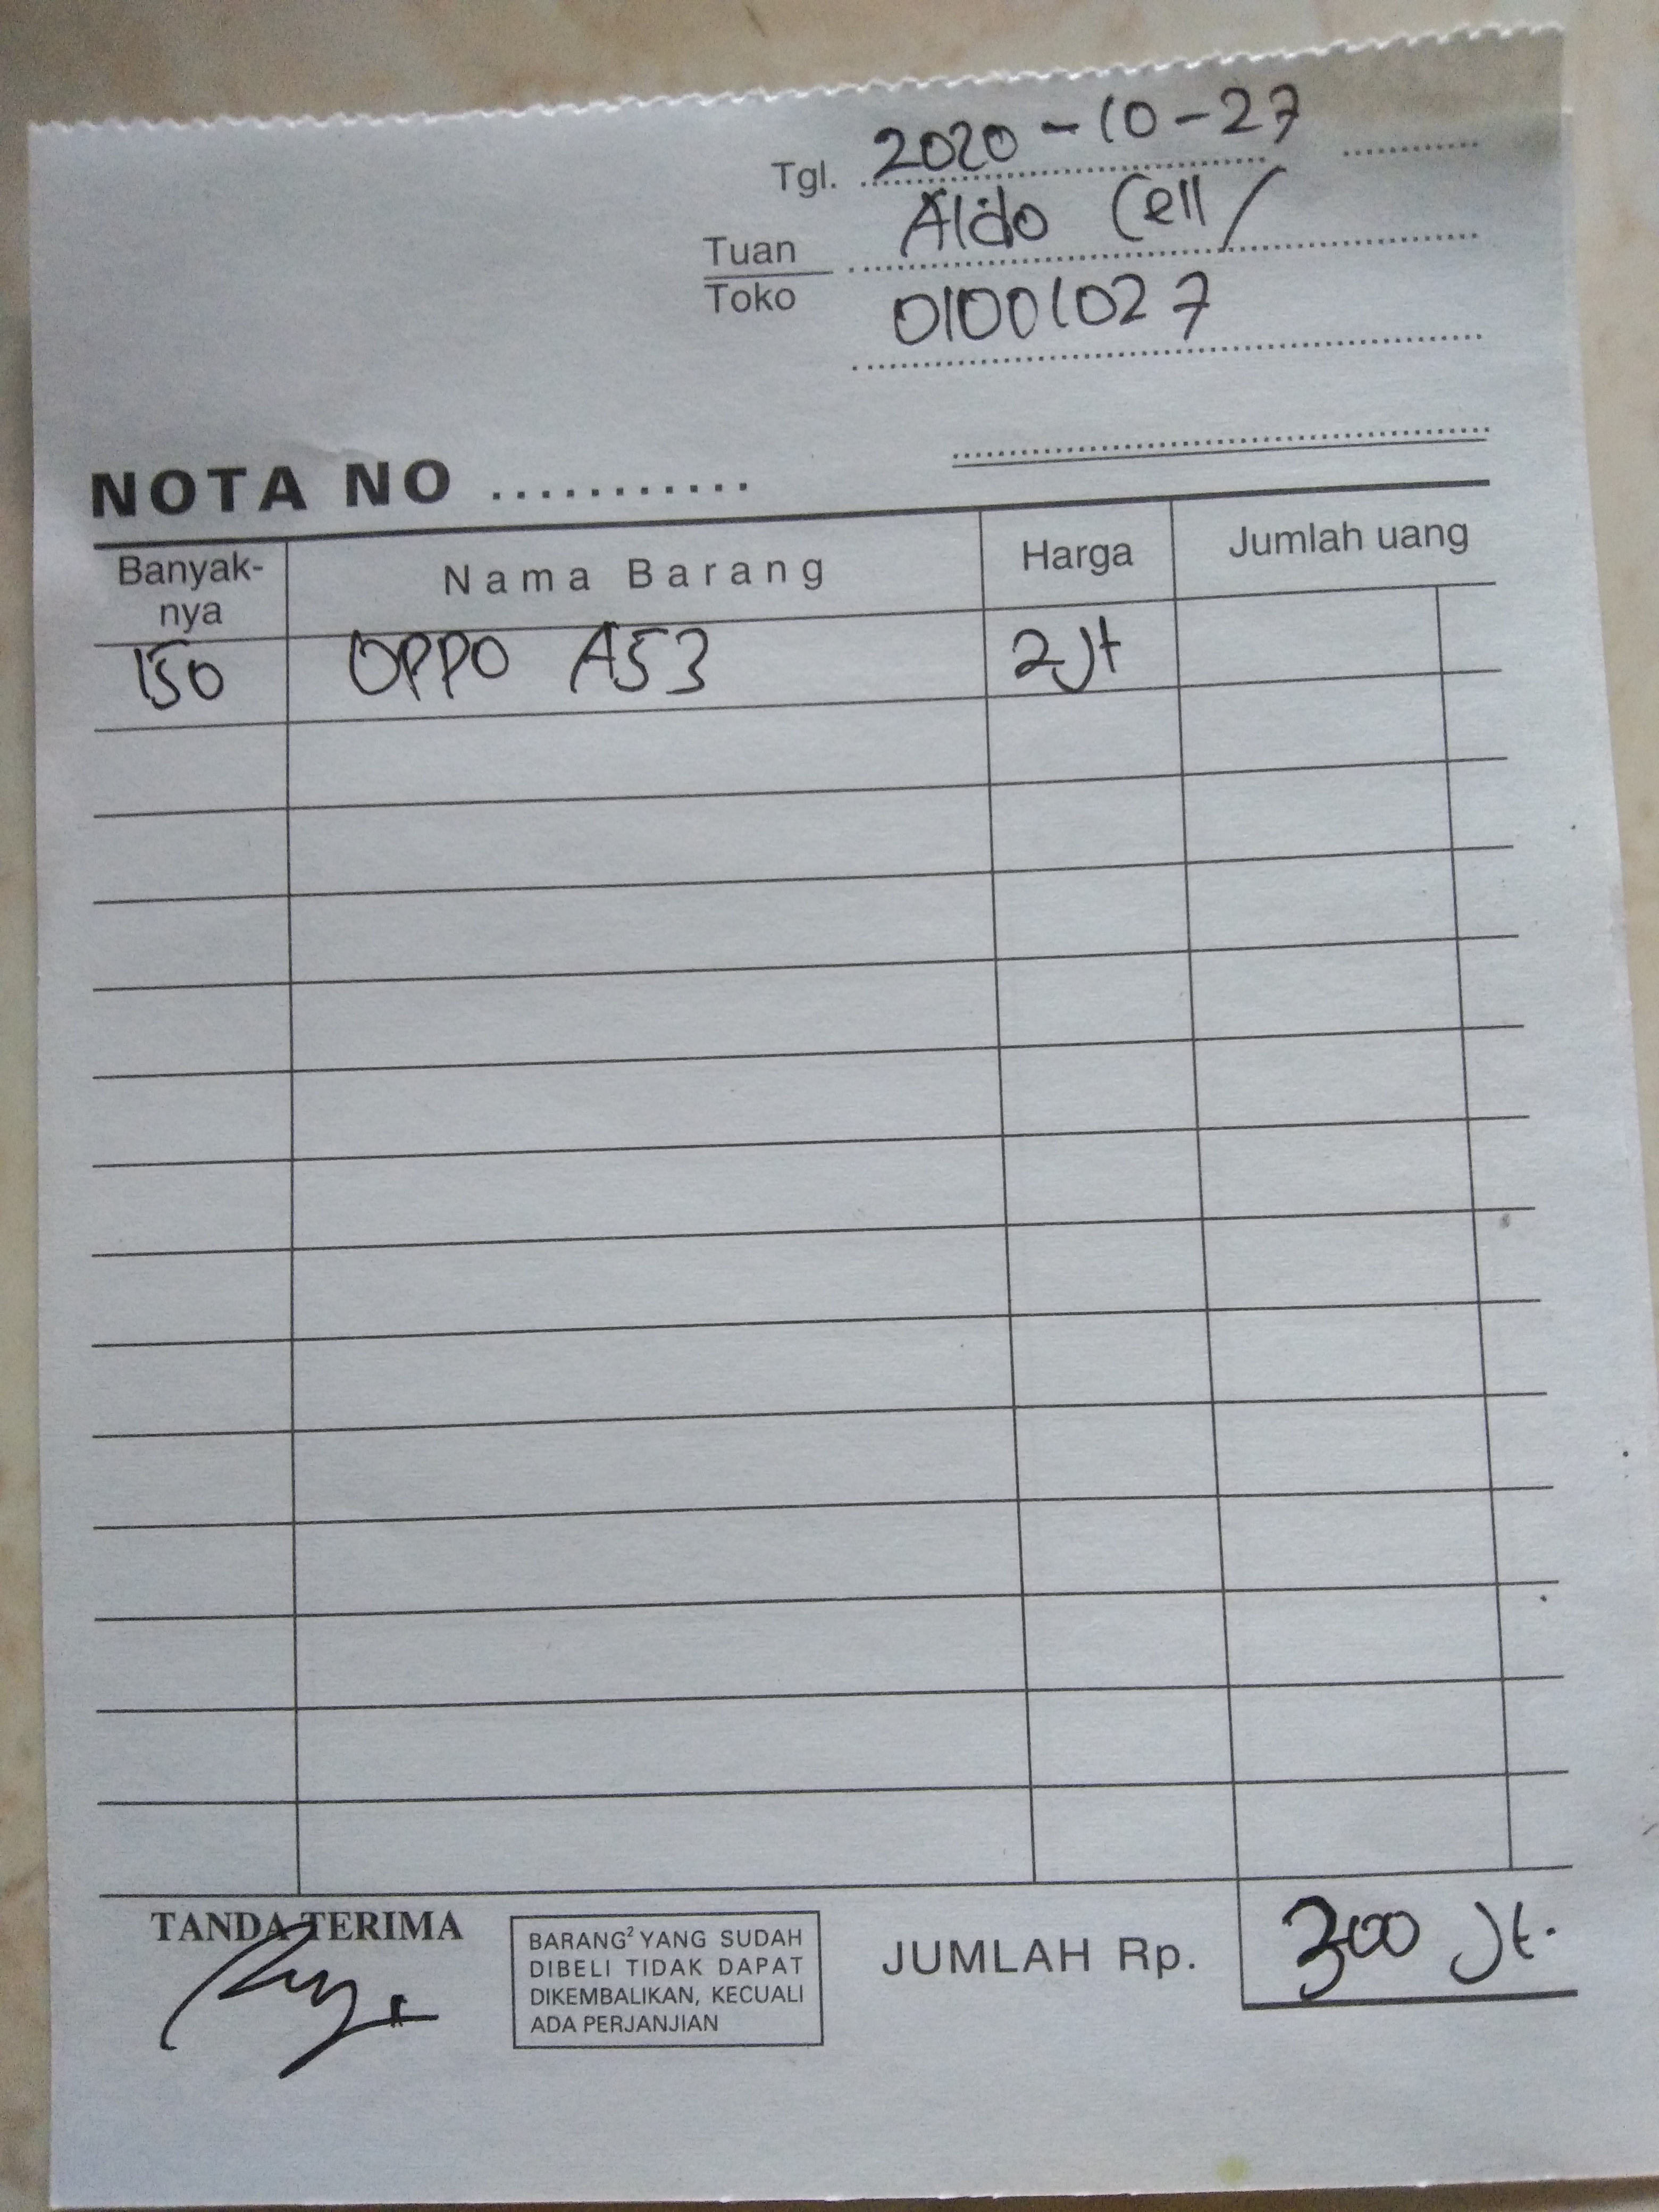 Tgl. 2020-10-27
Tuan Aldo Cell/
Toko 01001027
NOTA NO ...........
Banyak-nya Nama Barang Harga Jumlah uang
150 OPPO A53 2Jt
TANDA TERIMA
BARANG² YANG SUDAH
DIBELI TIDAK DAPAT
DIKEMBALIKAN, KECUALI
ADA PERJANJIAN
JUMLAH Rp. 300 Jt.